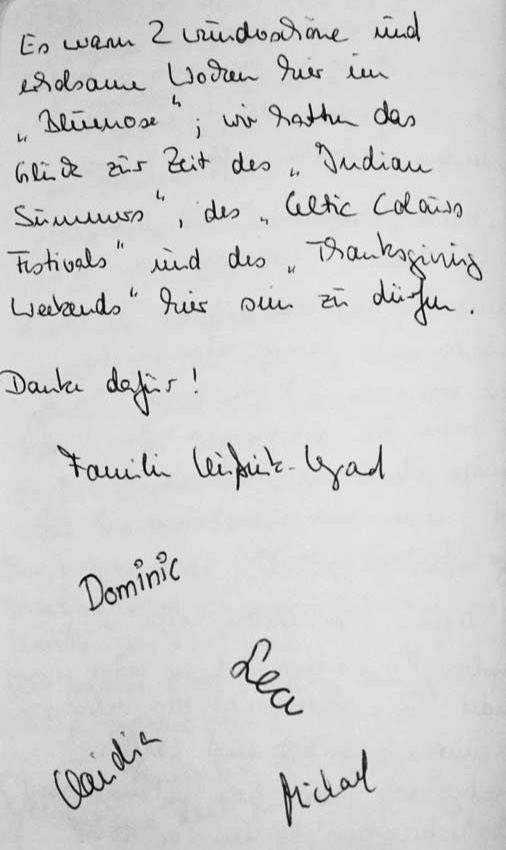 Es waren 2 wundeschöne und
erholsame Wochen hier im
„Bluenose“; wir hatten das
Glück zur Zeit des „Indian
Summers“, des „Celtic Colours
Festivals“ und des „Thanksgiving
Weekends“ hier sein zu dürfen.
Danke dafür!
Familie
Dominic
Lea
Claudia
Michael